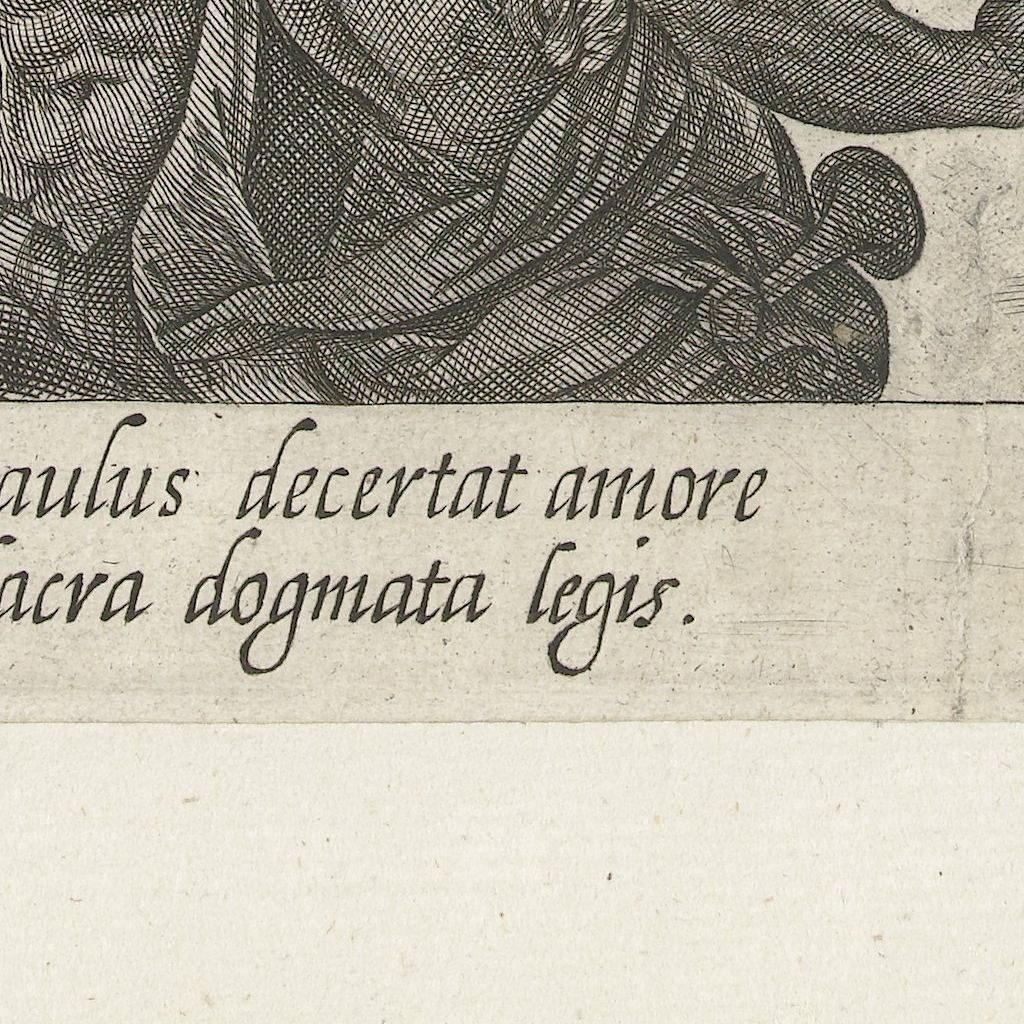 aulus decertat amore
acra dogmata legis.